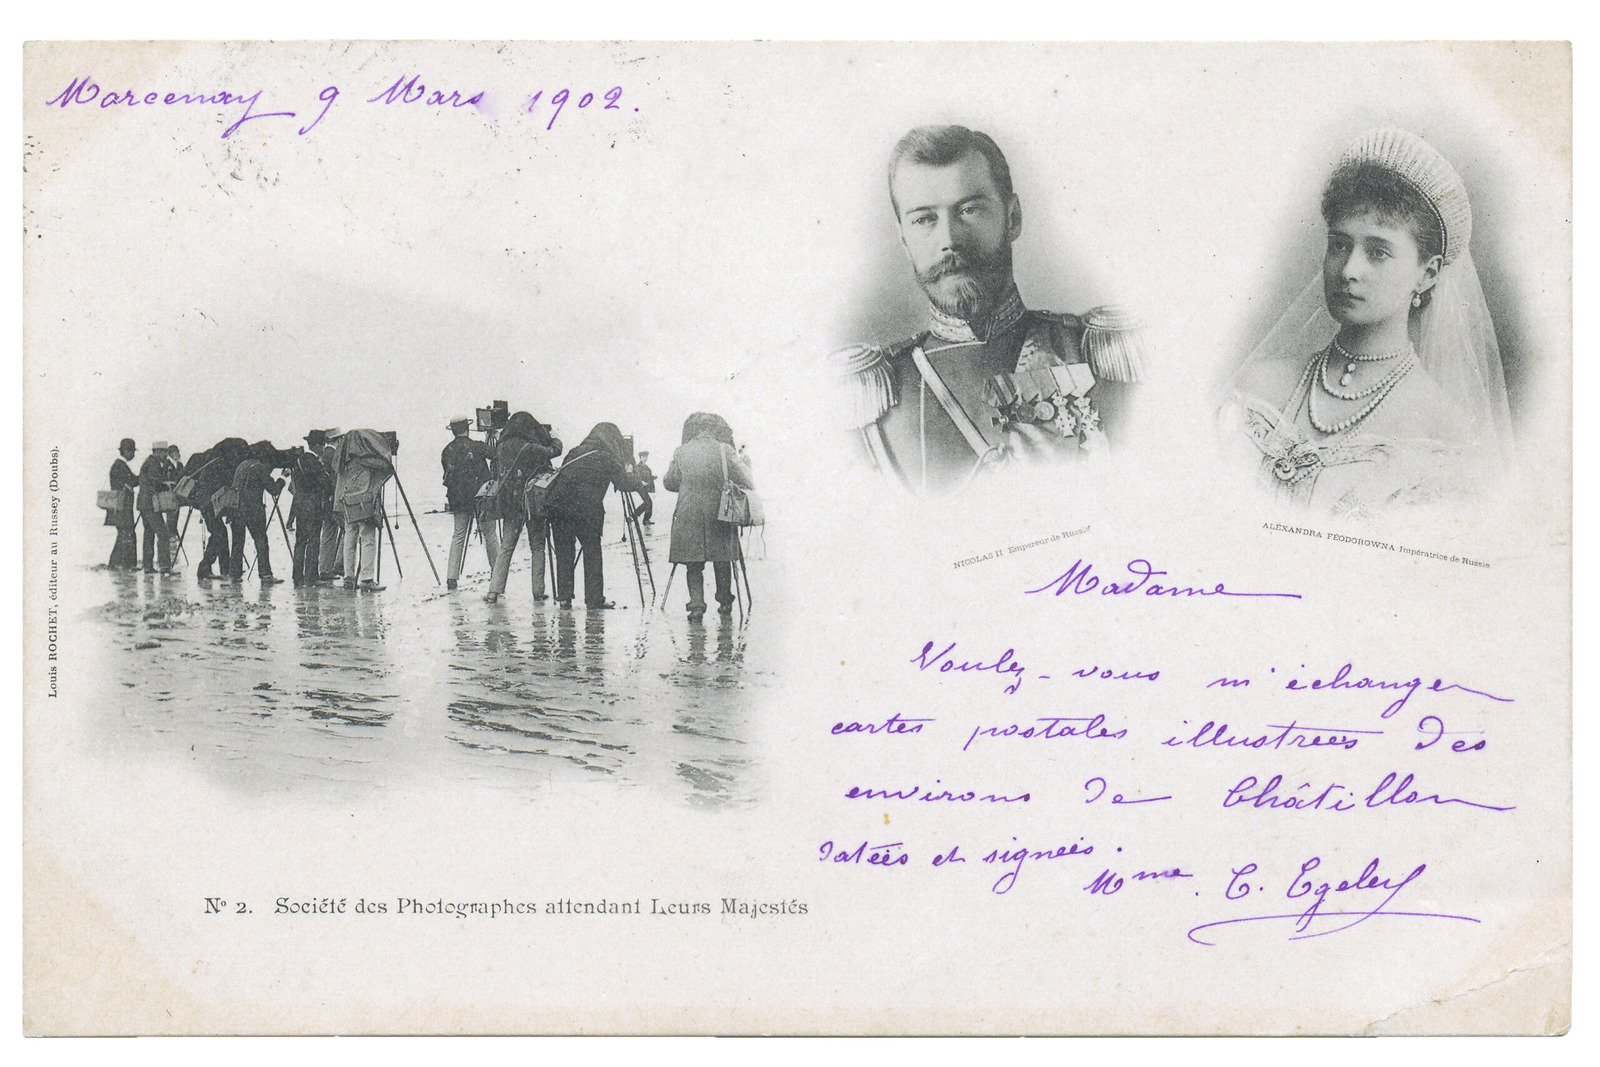 Marcenay 9 Mars 1902.
NICOLAS II Empereur de Russie
ALEXANDRA FÉODOROWNA Impératrice de Russie.
Louis ROCHET, éditeur au Russey (Doubs).
Madame
Voulez-vous m'échanger
cartes postales illustrées des
environs de Châtillon
datées et signées.
Mme. C. Egeley
Nº 2. Société des Photographes attendant Leurs Majestés